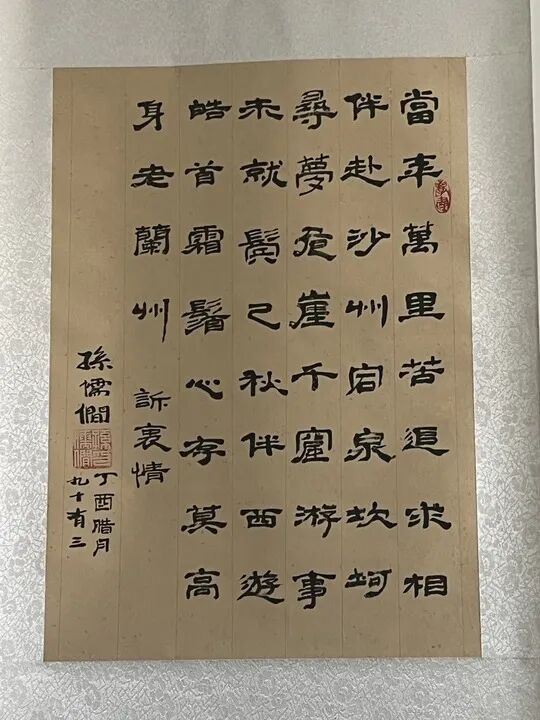 當年萬里苦追求相
伴赴沙州宕泉坎坷
尋夢危崖千窟游事
未就鬂已秋伴西遊
皓首霜鬚心存莫高
身老蘭州 訴衷情
孫儒僩
丁酉腊月
九十有三